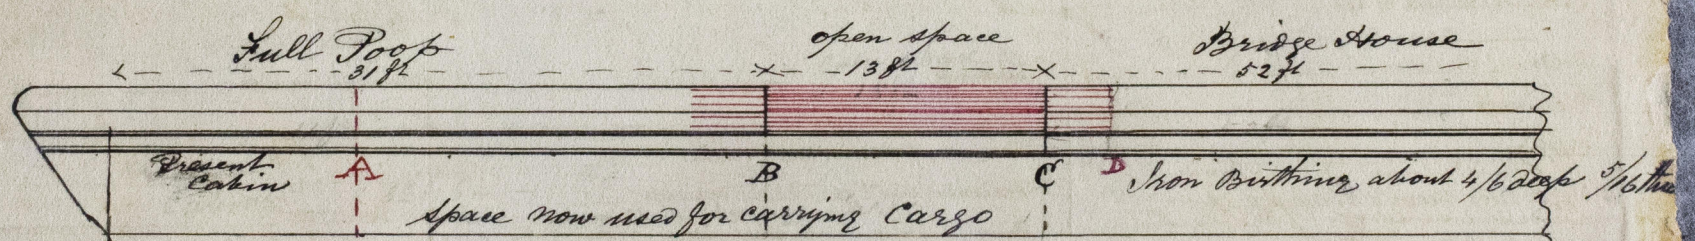 Full Poop
31 ft
open space
13 ft
Bridge House
52 ft
Present
Cabin
A
B
C
D
Iron Birthing about 4/6 deep 5/16
space now used for carrying Cargo